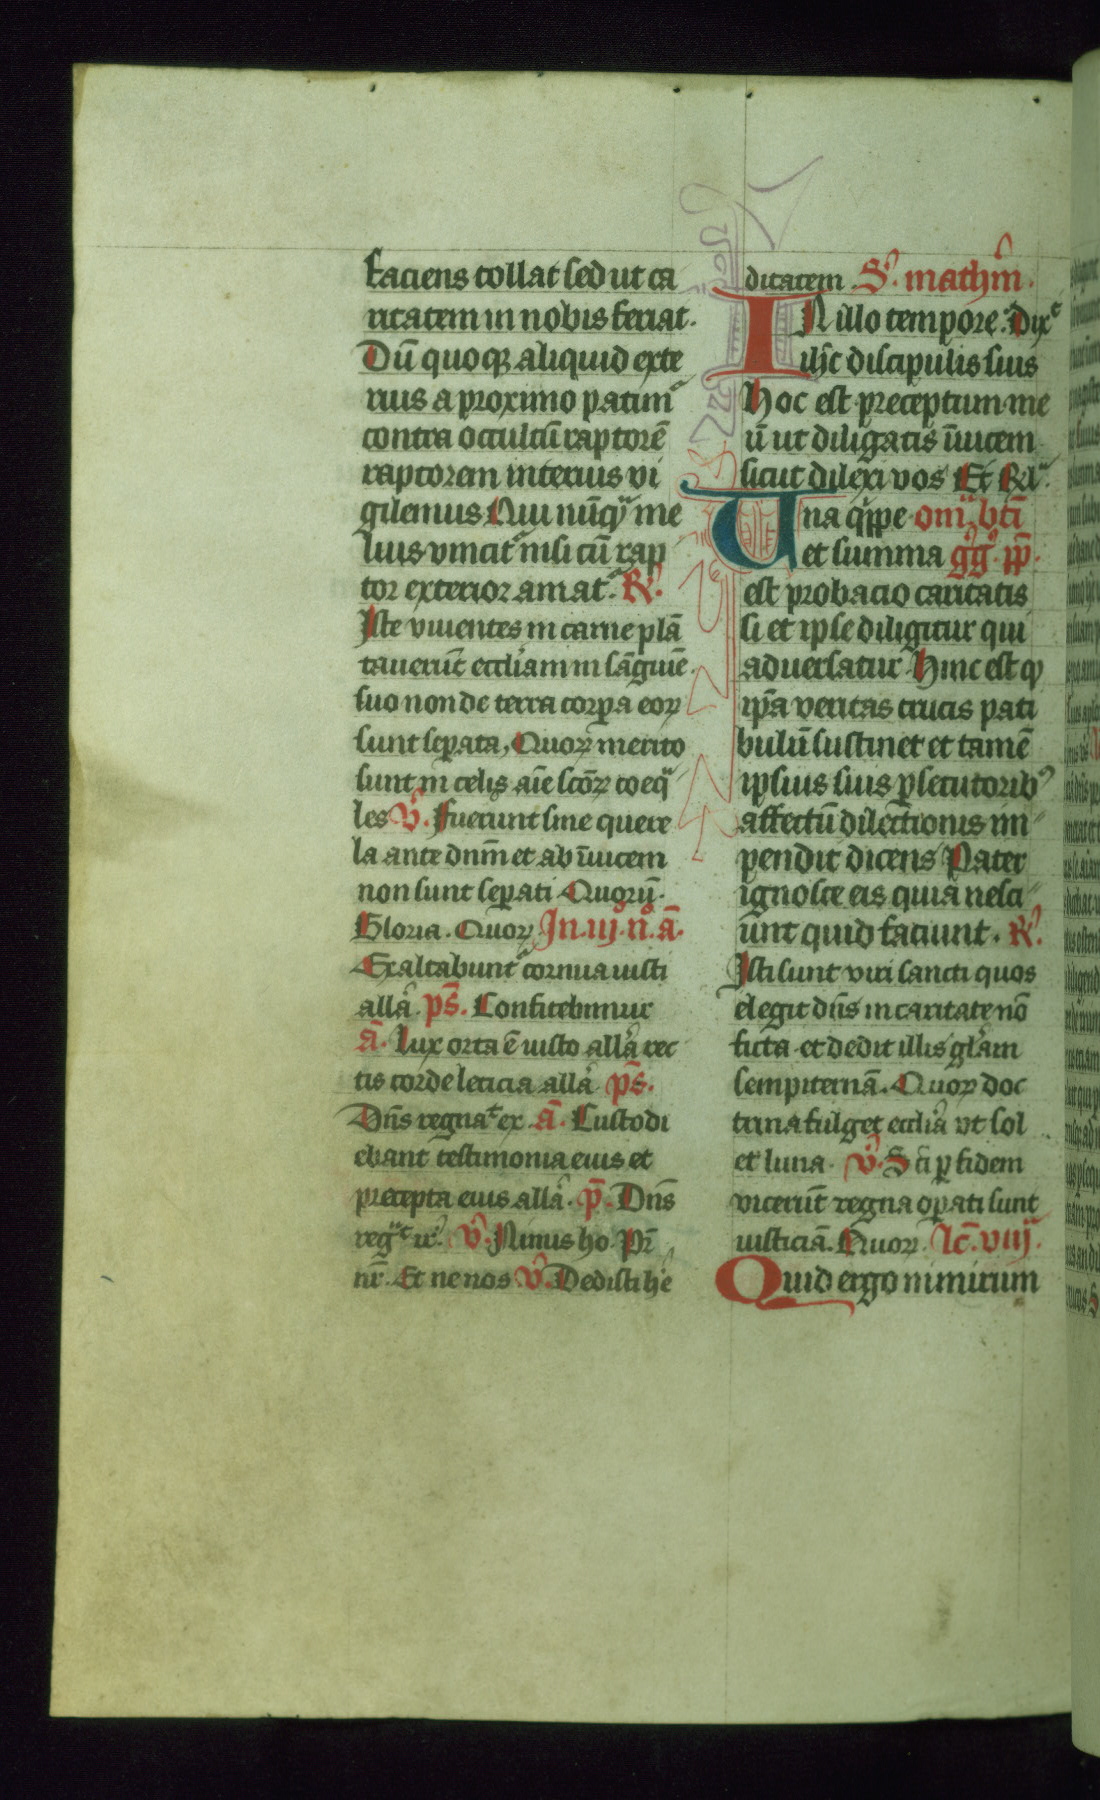 faciens tollat sed ut ca
ritatem in nobis feriat.
Dū quoqꝫ aliquid exte
rius a proximo patim᷒
contra occultū raptorē
raptorem interius vi
gilemus Qui nūqᷓ me
lius vincit᷒ nisi cū rap
tor exterior amat᷒. R̕.
Iste viuentes in carne plā
tauerūt eccl̕iam in sāguīe
suo non de terra corꝑa eoꝝ
sunt seꝑata, Quoꝝ merito
sunt in celis aīe scōꝝ coeqᷓ
les V̕. Fuerunt sine quere
la ante dnm̄ et ab īuicem
non sunt seꝑati Quorū.
Gloria. Quoꝝ In.iij.n̊.ā.
Exaltabunt᷒ cornua iusti
allā. p̄s. Confitebimur
ā. Lux orta ē iusto allā rec
tis corde leticia allā p̄s.
Dn̄s regnaᵗ ex. ā. Custodi
ebant testimonia eius et
precepta eius allā. p̄. Dn̄s
reg̈ᵗ ir̕. V̕. Nimis ho. Pr̄
nr̄. Et ne nos V̕. Dedisti he
ditatem S̕. mathm̄.
IN illo tempore. Dixᵗ
ih̄c discipulis suis
Hoc est preceptum me
ū ut diligatis īuicem
sicut dilexi vos Et Rl᷒.
Una qͥppe om̄ bt̄i
et summa gͦgͦ pp̄.
est probacio caritatis
si et ipse diligitur qui
aduersatur. Hinc est ꝙ
ip̄a veritas crucis pati
bulū sustinet et tamē
ipsius suis ꝑsecutorib᷒
affectū dilectionis im
pendit dicens Pater
ignosce eis quia nesci
unt quid faciunt. R̕.
Isti sunt viri sancti quos
elegit dn̄s in caritate nō
ficta et dedit illis gl̕am
sempiternā. Quoꝝ doc
trina fulget eccl̕ia ut sol
et luna. V̕. Scī ꝑ fidem
vicerūt regna oꝑati sunt
iusticiā. Quoꝝ. lc̄. viij.
Quid ergo nimirum